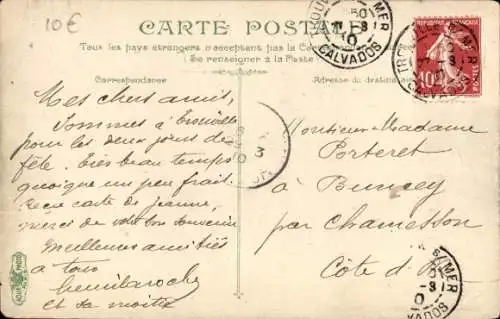 10€
CARTE POSTALE
Tous les pays étrangers n'acceptent pas la Correspondance
(Se renseigner à la Poste)
Correspondance
Adresse du destinataire
Mes chers amis,
Sommes à Trouville
pour les deux jours de
fête. Très beau temps
quoique un peu frais.
Reçu carte de Jeanne,
merci de votre bon souvenir
Meilleures amitiés
à tous
et sa moitié
Monsieur Madame
Porteret
à Buncey
par Chamesson
Côte d'Or
CALVADOS
10